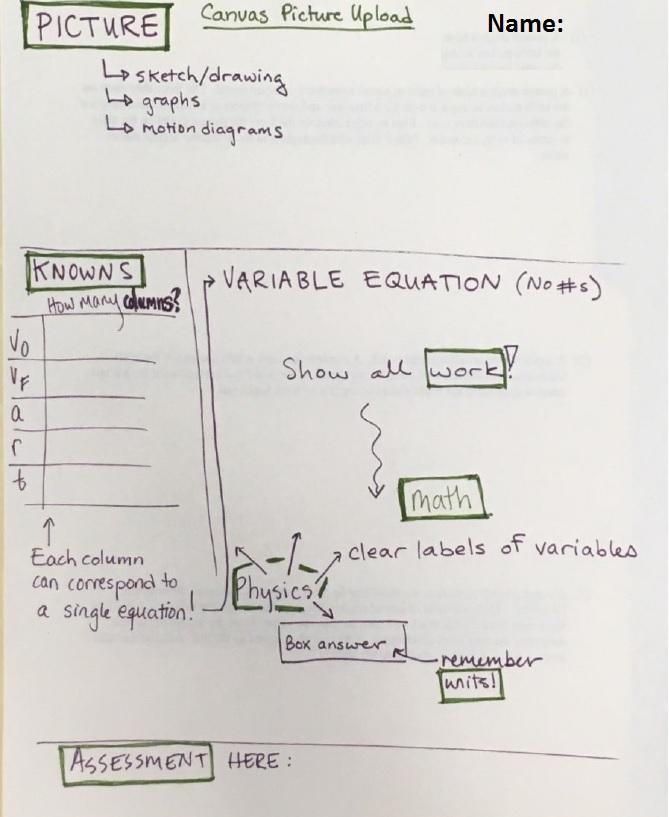 PICTURE
Canvas Picture Upload
Name:
sketch/drawing
graphs
motion diagrams
KNOWNS
How many columns?
V₀
V_F
a
r
t
Each column
can correspond to
a single equation!
VARIABLE EQUATION (No #s)
Show all work!
math
Physics!
clear labels of variables
Box answer
remember
units!
ASSESSMENT HERE: